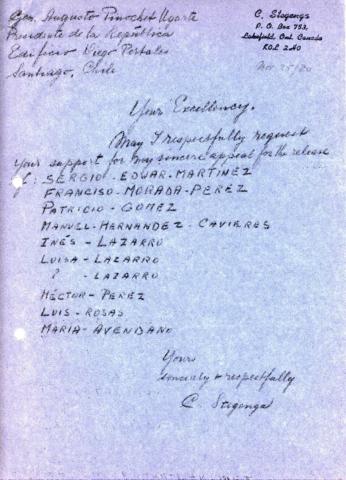 Gen. Augusto Pinochet Ugarte
Presidente de la República
Edificio Diego Portales
Santiago, Chile
C. Stegenga
P. O. Box 753,
Lakefield, Ont. Canada
K0L 2H0
Nov 25/80
Your Excellency.
May I respectfully request
your support for my sincere appeal for the release
of: SERGIO - EDWAR - MARTINEZ
FRANCISO - MORADA - PEREZ
PATRICIO - GOMEZ
MANUEL - HERNANDEZ - CAVIERES
INÉS - LAZARRO
LUISA - LAZARRO
? - LAZARRO
HÉCTOR - PEREZ
LUIS - ROSAS
MARIA - AVENDANO
Yours
sincerely & respectfully
C. Stegenga